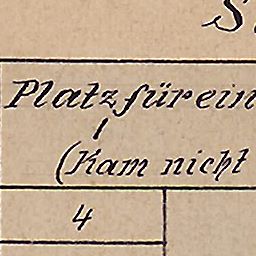 S
Platz für ein
(Kam nicht
4